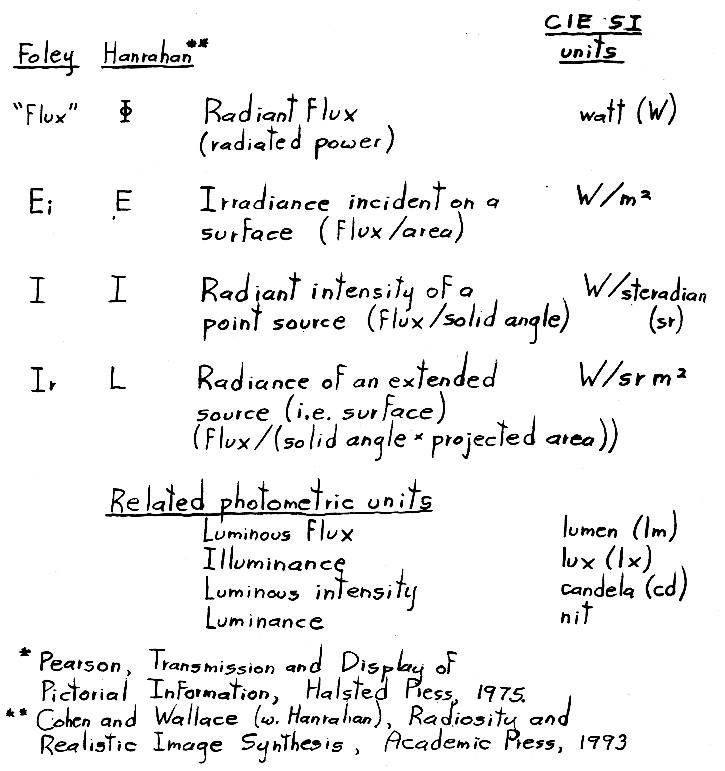 CIE SI
Foley Hanrahan** units
"Flux" Φ Radiant Flux watt (W)
(radiated power)
Ei E Irradiance incident on a W/m²
surface (Flux/area)
I I Radiant intensity of a W/steradian
point source (Flux/solid angle) (sr)
Ir L Radiance of an extended W/sr m²
source (i.e. surface)
(Flux/(solid angle * projected area))
Related photometric units
Luminous Flux lumen (lm)
Illuminance lux (lx)
Luminous intensity candela (cd)
Luminance nit
* Pearson, Transmission and Display of
Pictorial Information, Halsted Press, 1975.
** Cohen and Wallace (w. Hanrahan), Radiosity and
Realistic Image Synthesis, Academic Press, 1993